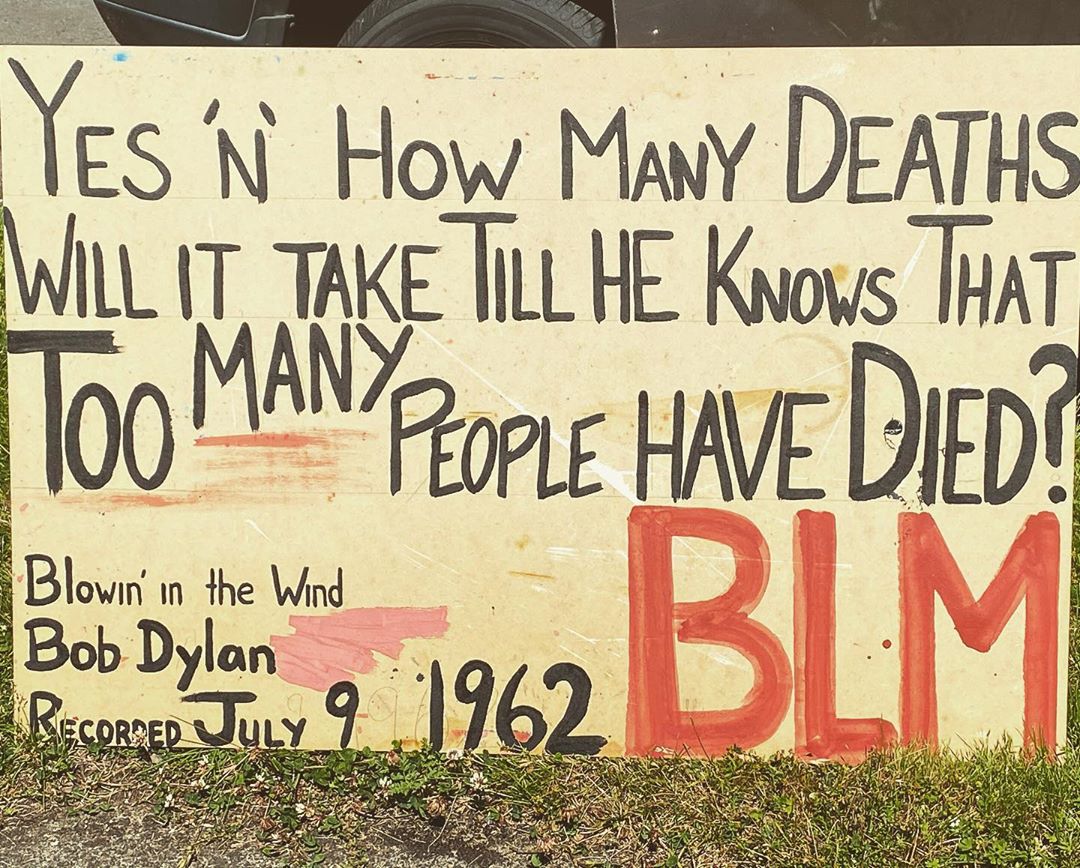 YES 'N' HOW MANY DEATHS
WILL IT TAKE TILL HE KNOWS THAT
TOO MANY PEOPLE HAVE DIED?
BLM
Blowin' in the Wind
Bob Dylan
RECORDED JULY 9 1962